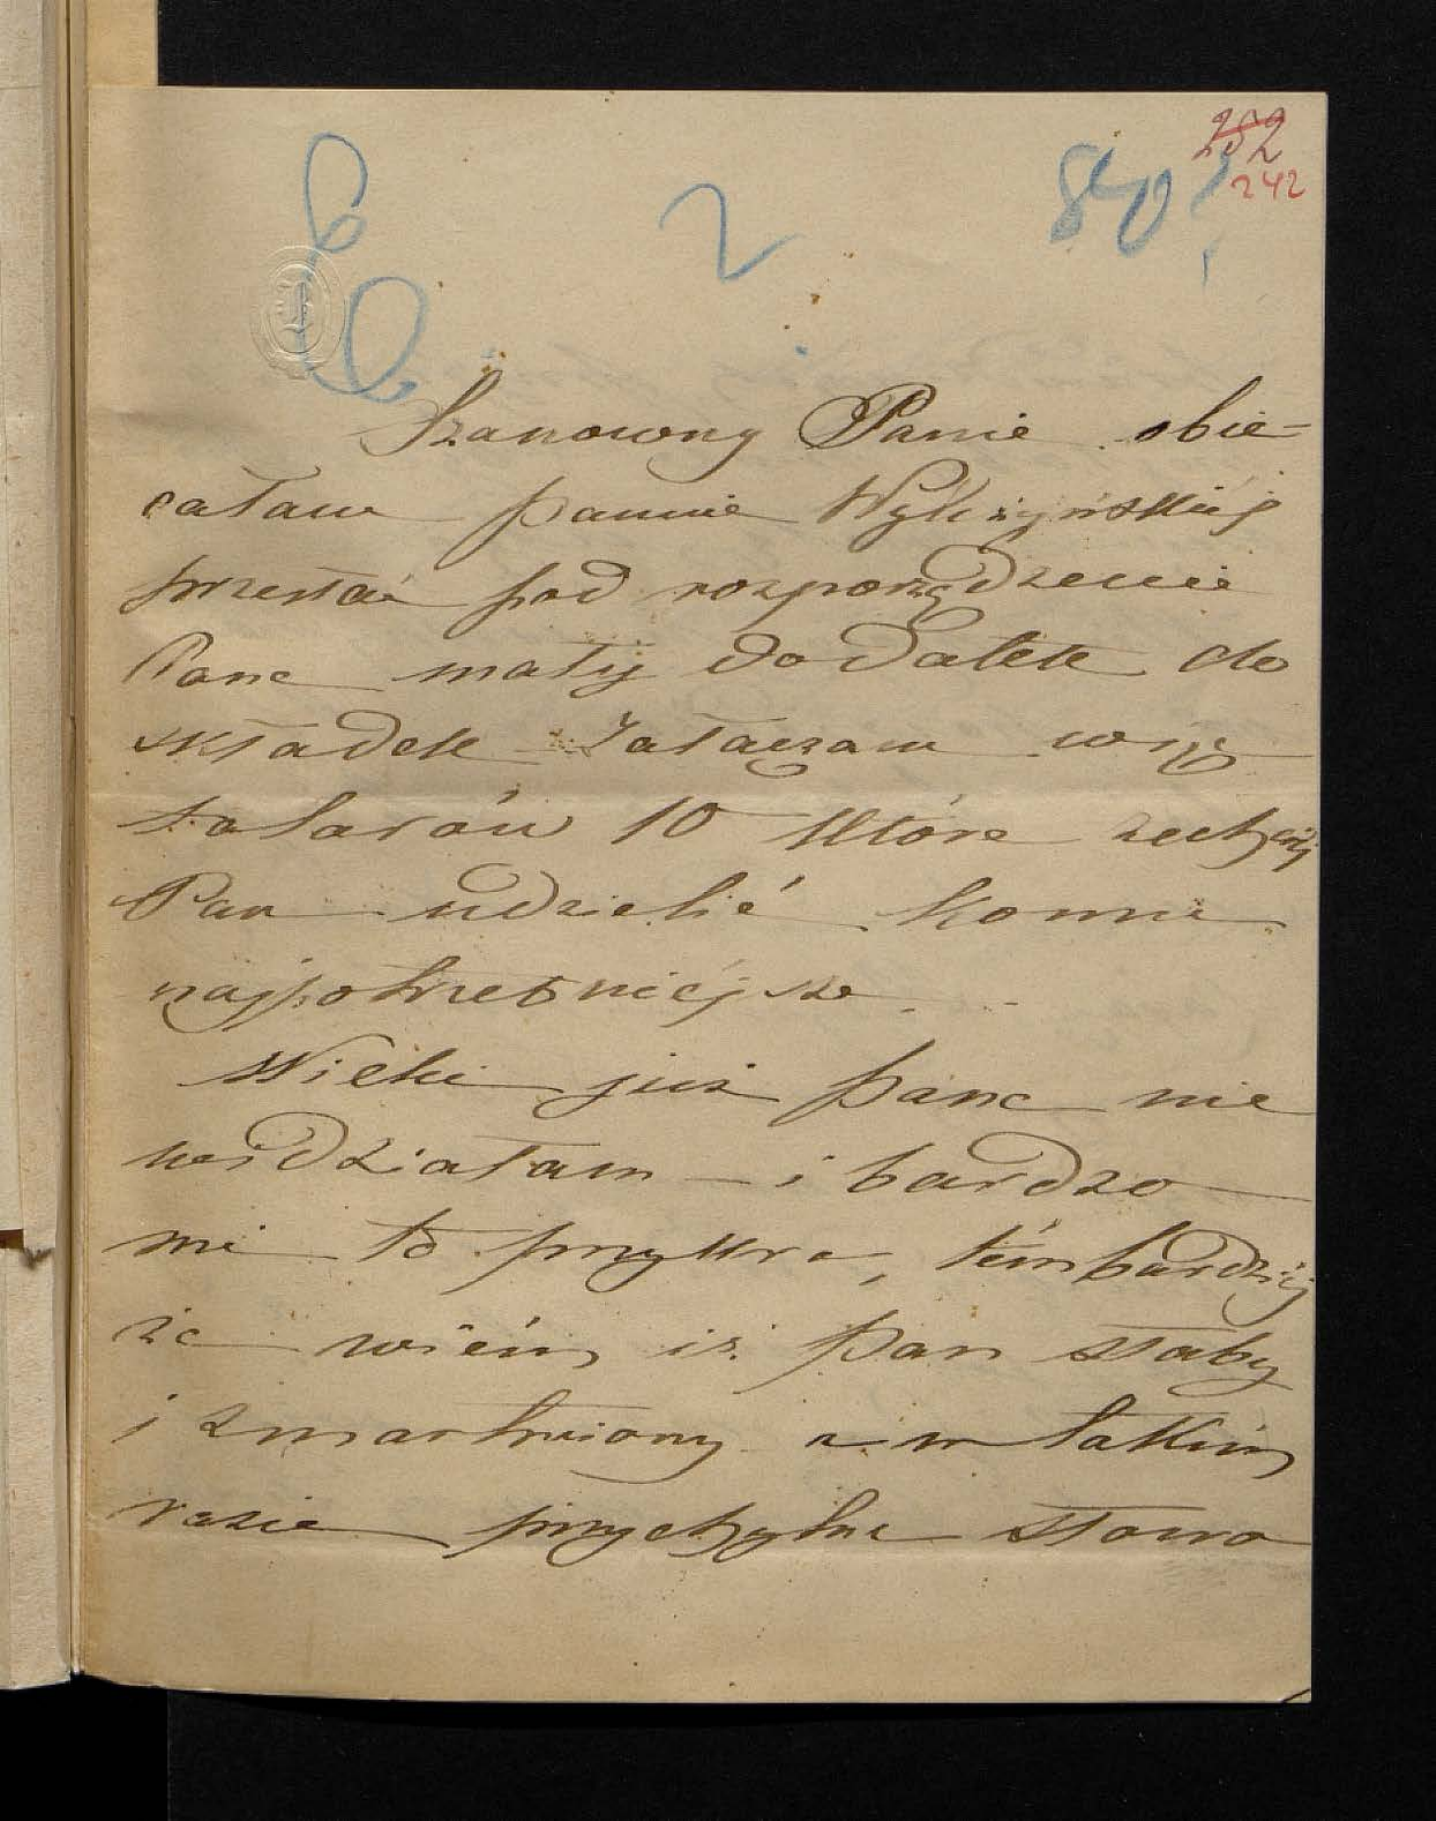 252
242
2 840
Szanowny Panie obie-
całam pannie
przesłać pod rozporządzenie
Pana mały dodatek do
składek Załączam więc
talarów 10 które zechciéj
Pan udzielić komu
najpotrzebniéjsze.
Wieki już pana nie
widziałam – i bardzo
mi to przykro, témbardziéj
że wiém iż pan słaby
i zmartwiony a w takim
razie przychylne słowo